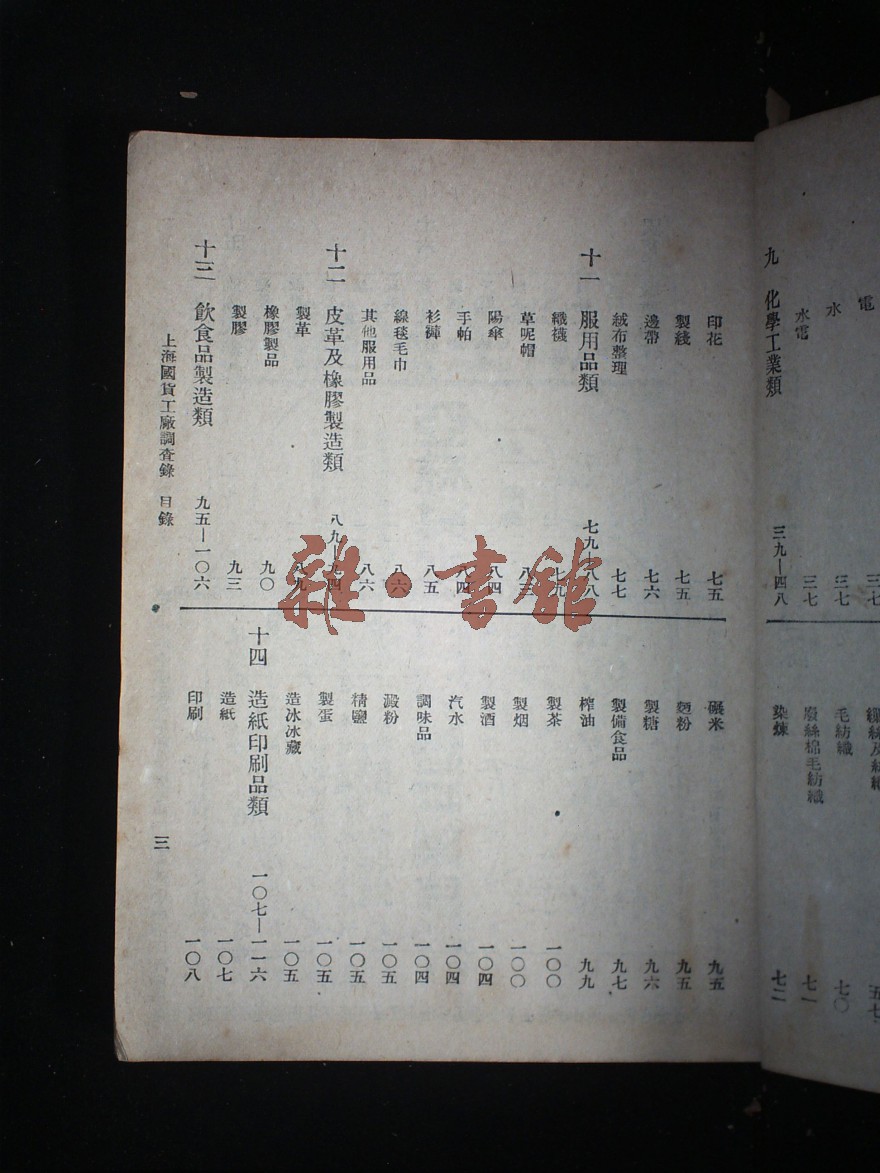 電 三七
水 三七
水電 三七
九 化學工業類 三九—四八
毛紡織 七〇
廢絲棉毛紡織 七一
染煉 七二
印花 七五
製綫 七五
邊帶 七六
絨布整理 七七
十一 服用品類 七九—八八
織襪 七九
草呢帽 八三
陽傘 八四
手帕 八四
衫褲 八五
線毯毛巾 八六
其他服用品 八六
十二 皮革及橡膠製造類 八九—九四
製革 八九
橡膠製品 九〇
製膠 九三
十三 飲食品製造類 九五—一〇六
碾米 九五
麵粉 九五
製糖 九六
製備食品 九七
榨油 九九
製茶 一〇〇
製烟 一〇〇
製酒 一〇四
汽水 一〇四
調味品 一〇四
澱粉 一〇五
精鹽 一〇五
製蛋 一〇五
造冰冰藏 一〇五
十四 造紙印刷品類 一〇七—一一六
造紙 一〇七
印刷 一〇八
上海國貨工廠調查錄 目錄
三
雜·書館